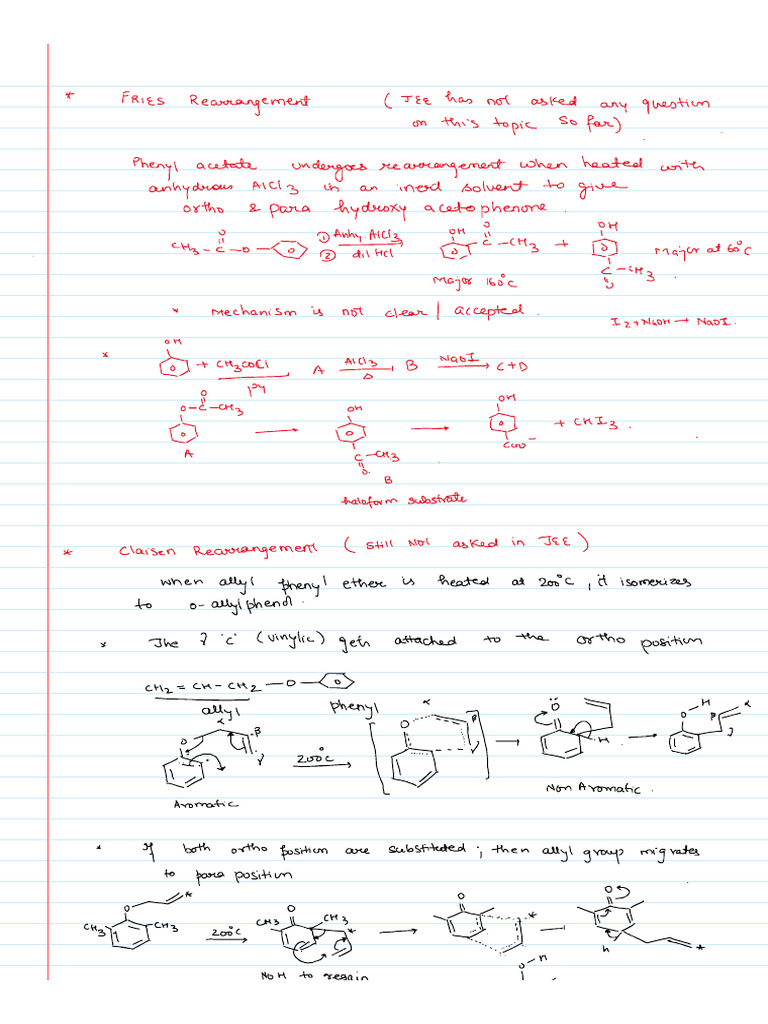 * FRIES Rearrangement ( JEE has not asked any question
on this topic So far)
Phenyl acetate undergoes rearrangement when heated with
anhydrous AlCl3 in an inert solvent to give
ortho & para hydroxy acetophenone.
CH3 - C - O - ① Anhy. AlCl3 ② dil HCl OH O C - CH3 + OH C - CH3 O Major at 60°C
Major 160°C
* Mechanism is not clear / accepted.
I2 + NaOH → NaOI.
* OH + CH3COCl Py A AlCl3 Δ B NaOI → C+D
O - C - CH3 O A → OH C - CH3 O B → OH COO- + CHI3.
haloform substrate
* Claisen Rearrangement ( Still Not asked in JEE )
When allyl phenyl ether is heated at 200°C, it isomerizes
to o-allylphenol.
* The γ 'C' (vinylic) gets attached to the ortho position
CH2 = CH - CH2 - O -
allyl phenyl
O α β γ 200°C → O α β γ → O H → O - H β α γ
Aromatic Non Aromatic.
* If both ortho position are substituted; then allyl group migrates
to para position
CH3 O CH3 * 200°C → CH3 O CH3 * → O * → O H *
No H to regain O - H